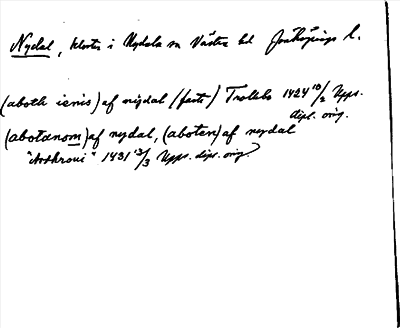 Nydal, kloster i Nydala sn Västra hd Jönköpings l.
(aboth ienis) af nigdal (fasto) Trollebo 1424 10/2 Upps.
dipl. orig.
(abotanom) af nydal, (aboten) af neydal
1431 13/3 Upps. dipl. orig.